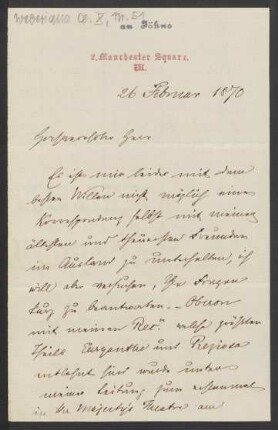 Weberiana Cl. X, Nr. 51
an Jähns
2, Manchester Square,
W.
26 Februar 1870
Hochverehrter Herr
Es ist mir leider mit dem
besten Willen nicht möglich eine
Korrespondenz selbst mit meinen
ältesten und theuersten Freunden
im Ausland zu unterhalten, ich
will aber versuchen, Ihre Fragen
kurz zu beantworten. – Oberon
mit meinen Rec. welche größten
Theils Euryanthe und Preziosa
entlehnt sind wurde unter
meiner Leitung zum erstenmal
in Her Majesty's Theatre am